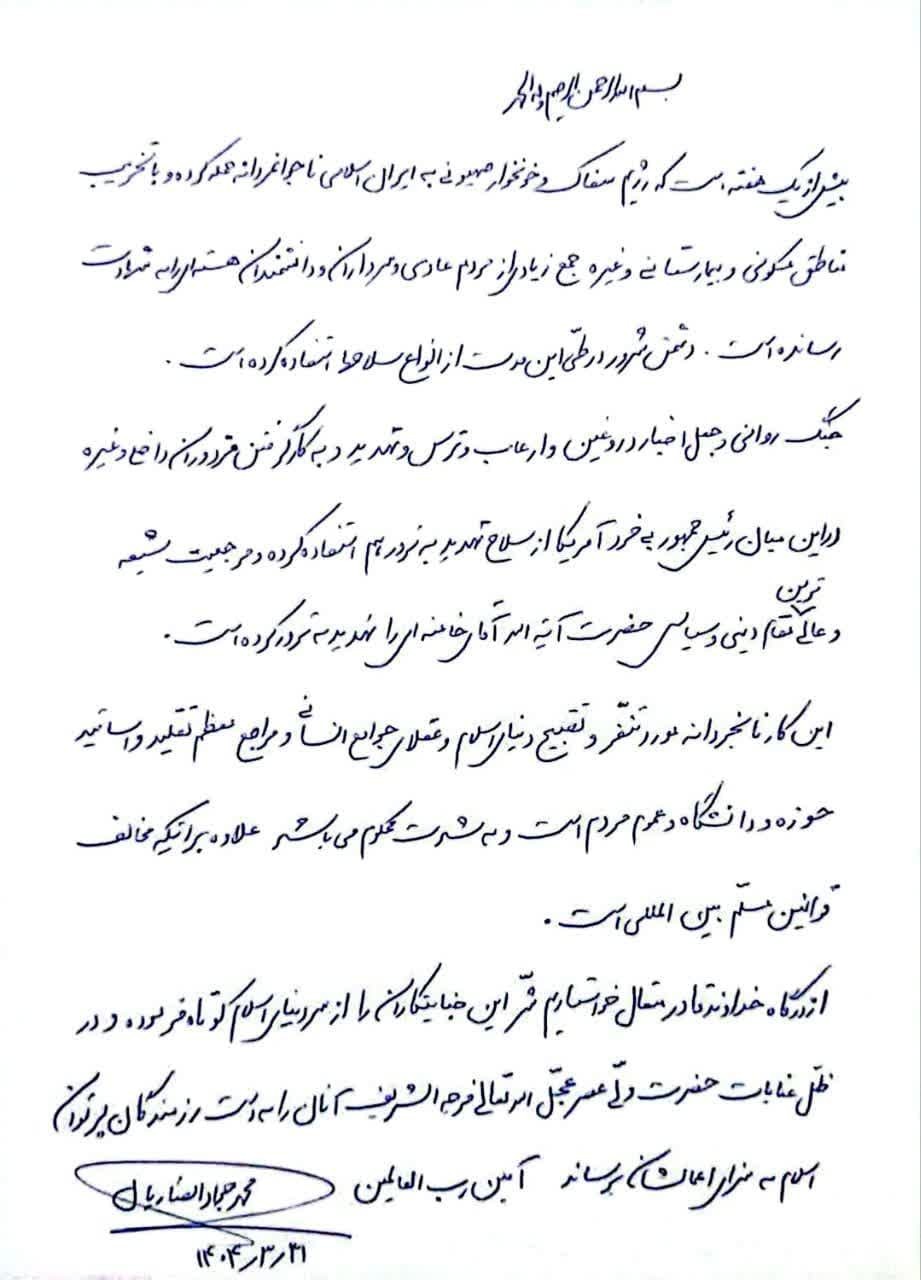 بسم الله الرحمن الرحیم وله الحمد
بیش از یک هفته است که رژیم سفاک و خونخوار صهیونی به ایران اسلامی ناجوانمردانه حمله کرده و با تخریب
مناطق مسکونی و بیمارستانی و غیره جمع زیادی از مردم عادی و سرداران و دانشمندان هسته‌ای را به شهادت
رسانده است . دشمن شرور در طیّ این مدت از انواع سلاحها استفاده کرده است .
جنگ روانی و جعل اخبار دروغین و ارعاب و ترس و تهدید و به کار گرفتن مزدوران داخلی و غیره
در این میان رئیس جمهور بی خرد آمریکا از سلاح تهدید به ترور هم استفاده کرده و مرجعیت شیعه
و عالی ترین مقام دینی و سیاسی حضرت آیة الله آقای خامنه ای را تهدید به ترور کرده است .
این کار نابخردانه مورد تنفّر و تقبیح دنیای اسلام و عقلای جوامع انسانی و مراجع معظم تقلید و اساتید
حوزه و دانشگاه و عموم مردم است و به شدت محکوم می باشد علاوه بر اینکه مخالف
قوانین مسلّم بین المللی است .
از درگاه خداوند قادر متعال خواستاریم شرّ این جنایتکاران را از سر دنیای اسلام کوتاه فرموده و در
ظلّ عنایات حضرت ولّی عصر عجّل الله تعالی فرجه الشریف آنان را به دست رزمندگان پرتوان
اسلام به سزای اعمالشان برساند آمین رب العالمین
محمد جواد
۱۴۰۴٫۳٫۳۱